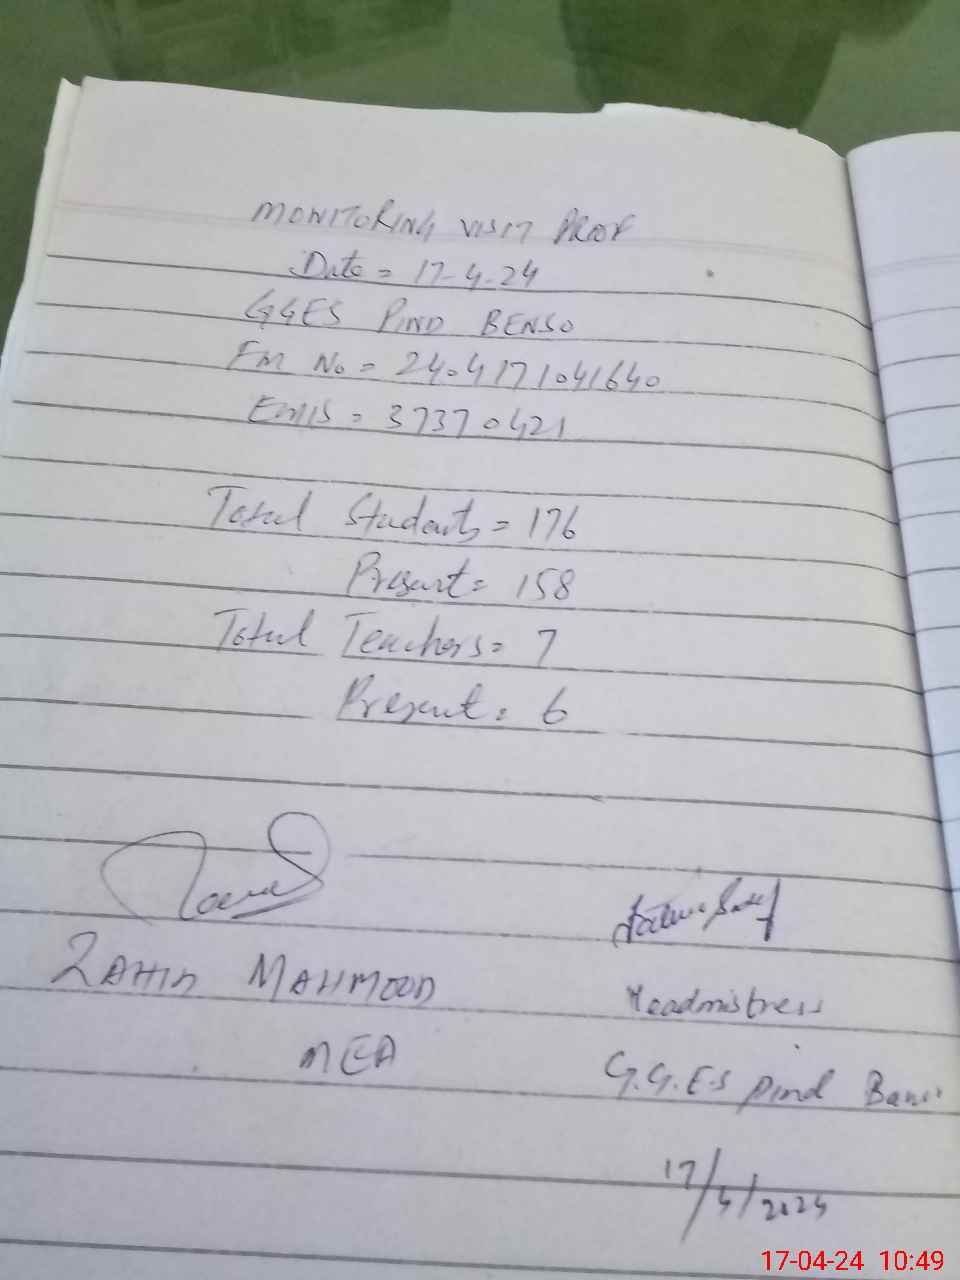 MONITORING VISIT PROOF
Date = 17-4-24
GGES PIND BENSO
Em No = 2404171041640
EMIS = 37370421
Total Students = 176
Present = 158
Total Teachers = 7
Present = 6
ZAHID MAHMOOD
Headmistress
MEA
G.G.E.S Pind
17/4/2024
17-04-24 10:49